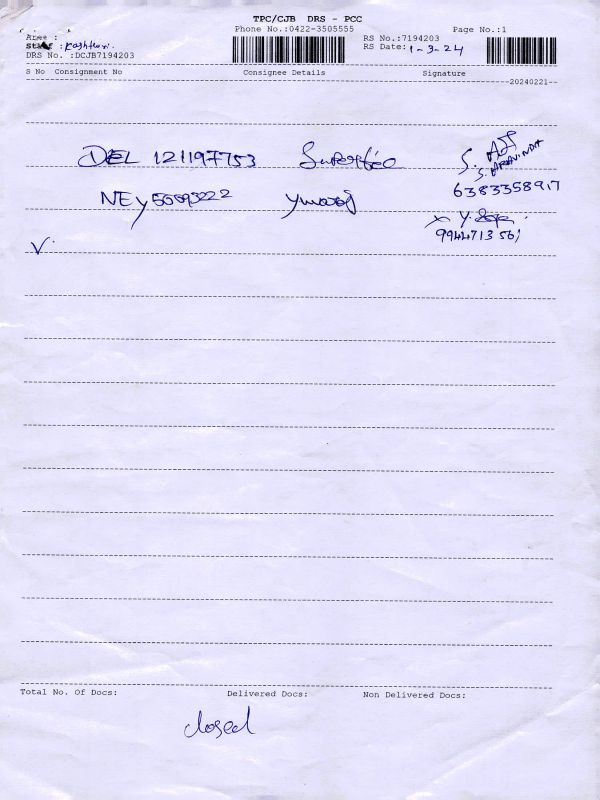 TPC/CJB DRS - PCC
Phone No.:0422-3505555 Page No.:1
Area :
RS No.:7194203
Staff : RS Date: 1-3-24
DRS No. :DCJB7194203
S No Consignment No Consignee Details Signature
20240221
DEL 121197753 S. ARAVINDH
6383358917
NEY
9944713561
Total No. Of Docs: Delivered Docs: Non Delivered Docs:
closed